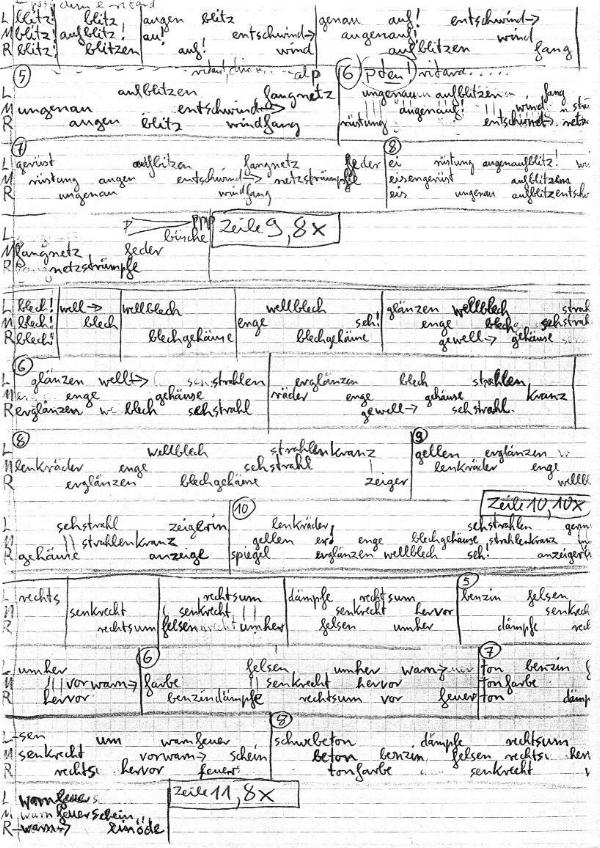 L blitz! blitz, augen blitz genau auf! entschwind→
M blitz! aufblitz! au! entschwind→ augenauf! wind
R blitz! blitzen auf! wind aufblitzen fang
⑤ alp ⑥ ritard.....
L aufblitzen fangnetz ungenau aufblitzen fang
M ungenau entschwind→ augenauf! wind
R augen blitz windfang rüstung entschwind→ netz
⑦ ⑧
L gerüst aufblitzen fangnetz feder ei rüstung augenaufblitz!
M rüstung augen entschwind→ netzstrümpfe eisengerüst aufblitzen
R ungenau windfang eis ungenau aufblitzentsch
p ppp Zeile 9, 8x
L büsche
M fangnetz feder
R netzstrümpfe
L blech! well→ wellblech wellblech glänzen wellblech strah
M blech! blech enge seh! enge blech sehstrahl
R blech! blechgehäuse blechgehäuse gewell→ gehäuse
⑥
L glänzen well→ sehstrahlen erglänzen blech strahlen
M enge gehäuse räder enge gehäuse kranz
R erglänzen blech sehstrahl gewell→ sehstrahl
⑧ ⑨
L wellblech strahlenkranz gellen erglänzen
M lenkräder enge sehstrahl lenkräder enge
R erglänzen blechgehäuse zeiger wellbl
⑩ Zeile 10, 10x
L sehstrahl zeigerin lenkräder sehstrahlen
M strahlenkranz gellen enge blechgehäuse strahlenkranz
R gehäuse anzeige spiegel erglänzen wellblech seh! anzeiger
⑤
L rechts rechtsum dämpfe rechtsum benzin felsen
M senkrecht senkrecht senkrecht hervor senkrech
R rechtsum felsen umher felsen umher dämpfe rech
⑥ ⑦
L umher felsen umher warn→ ton benzin
M vorwarn→ farbe senkrecht hervor tonfarbe
R hervor benzindämpfe rechtsum vor feuer ton dämp
⑧
L sen um warnfeuer schwebeton dämpfe rechtsum
M senkrecht vorwarn→ schein beton benzin felsen rechts
R rechts hervor feuer tonfarbe senkrecht
Zeile 11, 8x
L warnfeuer
M warnfeuerschein
R warn→ einöde